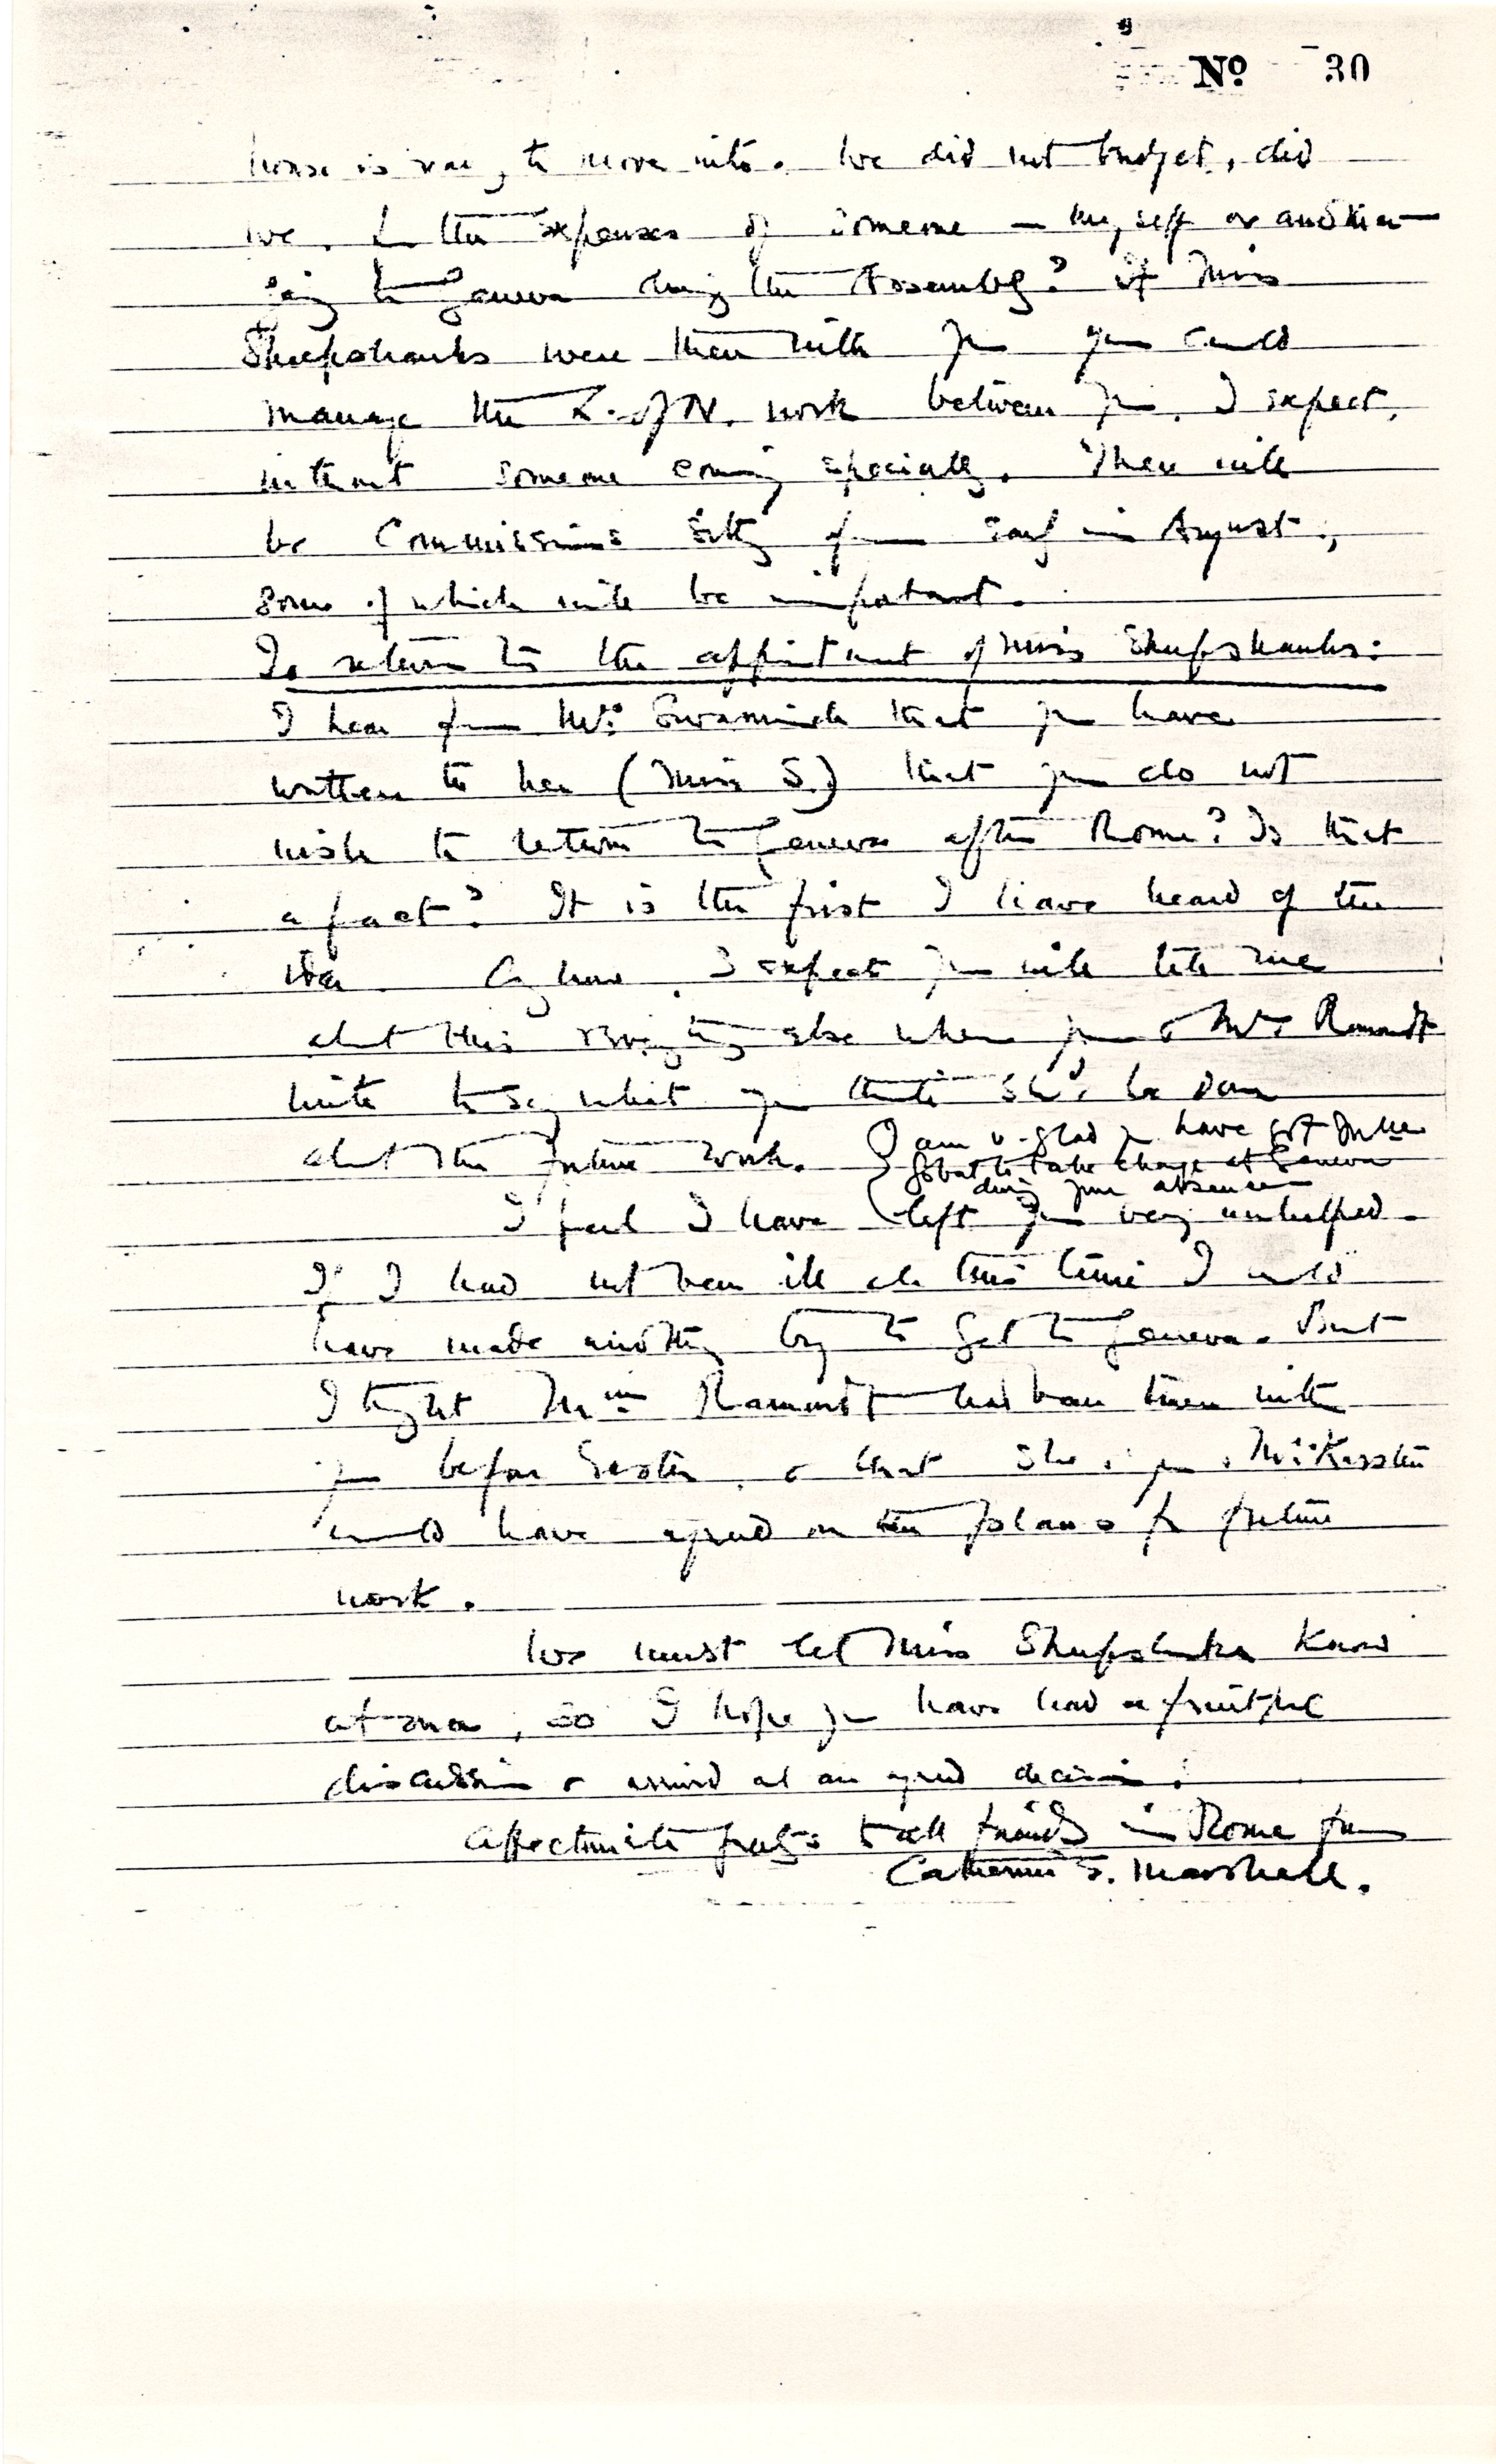 No 30
house is ready to move into. We did not budget, did
we, for the expenses of someone – myself or another
going to Geneva during the Assembly? If Miss
Sheepshanks were there with you you could
manage the L. of N. work between you, I expect,
without someone coming specially. There will
be Commissions sitting from early in August,
some of which will be important.
To return to the appointment of Miss Sheepshanks:
I hear from Mrs Swanwick that you have
written to her (Miss S.) that you do not
wish to return to Geneva after Rome? Is that
a fact? It is the first I have heard of the
idea. Anyhow, I expect you will tell me
about this & everything else when you & Mme Ramondt
write to say what you think shd be done
about the future work. I am v. glad you have got Mlle
Gobat to take charge at Geneva
during your absence
I feel I have left you very unhelped.
If I had not been ill all this time I wld
have made another try to get to Geneva. But
I thought Mme Ramondt had been there with
you before Easter, & that she, you,
would have agreed on the plans for future
work.
We must let Miss Sheepshanks know
at once, so I hope you have had a fruitful
discussion & arrived at an agreed decision.
Affectionate greetgs to all friends in Rome from
Catherine E. Marshall.